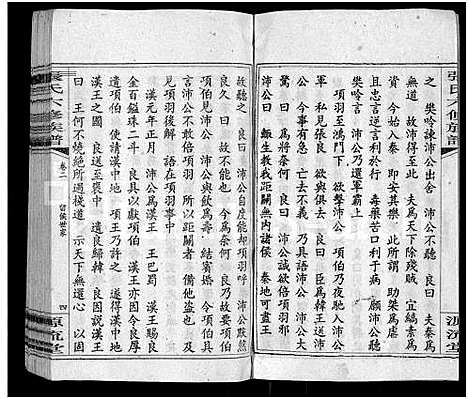 張氏六修族譜
源流堂
之 樊噲諫沛公出舍 沛公不聽 良曰 夫秦爲
無道 故沛得至此 夫爲天下除殘賊 宜縞素爲
資 今始入秦 即安其樂 此所謂 助桀爲虐
且忠言逆耳利于行 毒藥苦口利于病 願沛公聽
樊噲言 沛公乃還軍霸上
項羽至鴻門下 欲擊沛公 項伯乃夜馳入沛公
軍 私見張良 欲與俱去 良曰 臣爲韓王送沛
公 今事有急 亡去不義 乃具語沛公 沛公大
驚曰 爲將奈何 良曰 沛公誠欲倍項羽邪
沛公曰 鯫生教我距關無內諸侯 秦地可盡王
故聽之 良曰 沛公自度能卻項羽乎 沛公默然
良久曰 故不能也 今爲奈何 良乃故要項伯
項伯見沛公 沛公與飲爲壽 結賓婚 令項伯具
言沛公不敢倍項羽 所以距關者 備他盜也 及
見項羽後解 語在項羽事中
漢元年正月 沛公爲漢王 王巴蜀 漢王賜良
金百鎰珠二斗 良具以獻項伯 漢王亦因令良厚
遺項伯 使請漢中地 項王乃許之 遂得漢中地
漢王之國 良送至褒中 遣良歸韓 良因說漢王
曰 王何不燒絕所過棧道 示天下無還心 以固
張氏六修族譜 卷二 留侯世家 四 源流堂